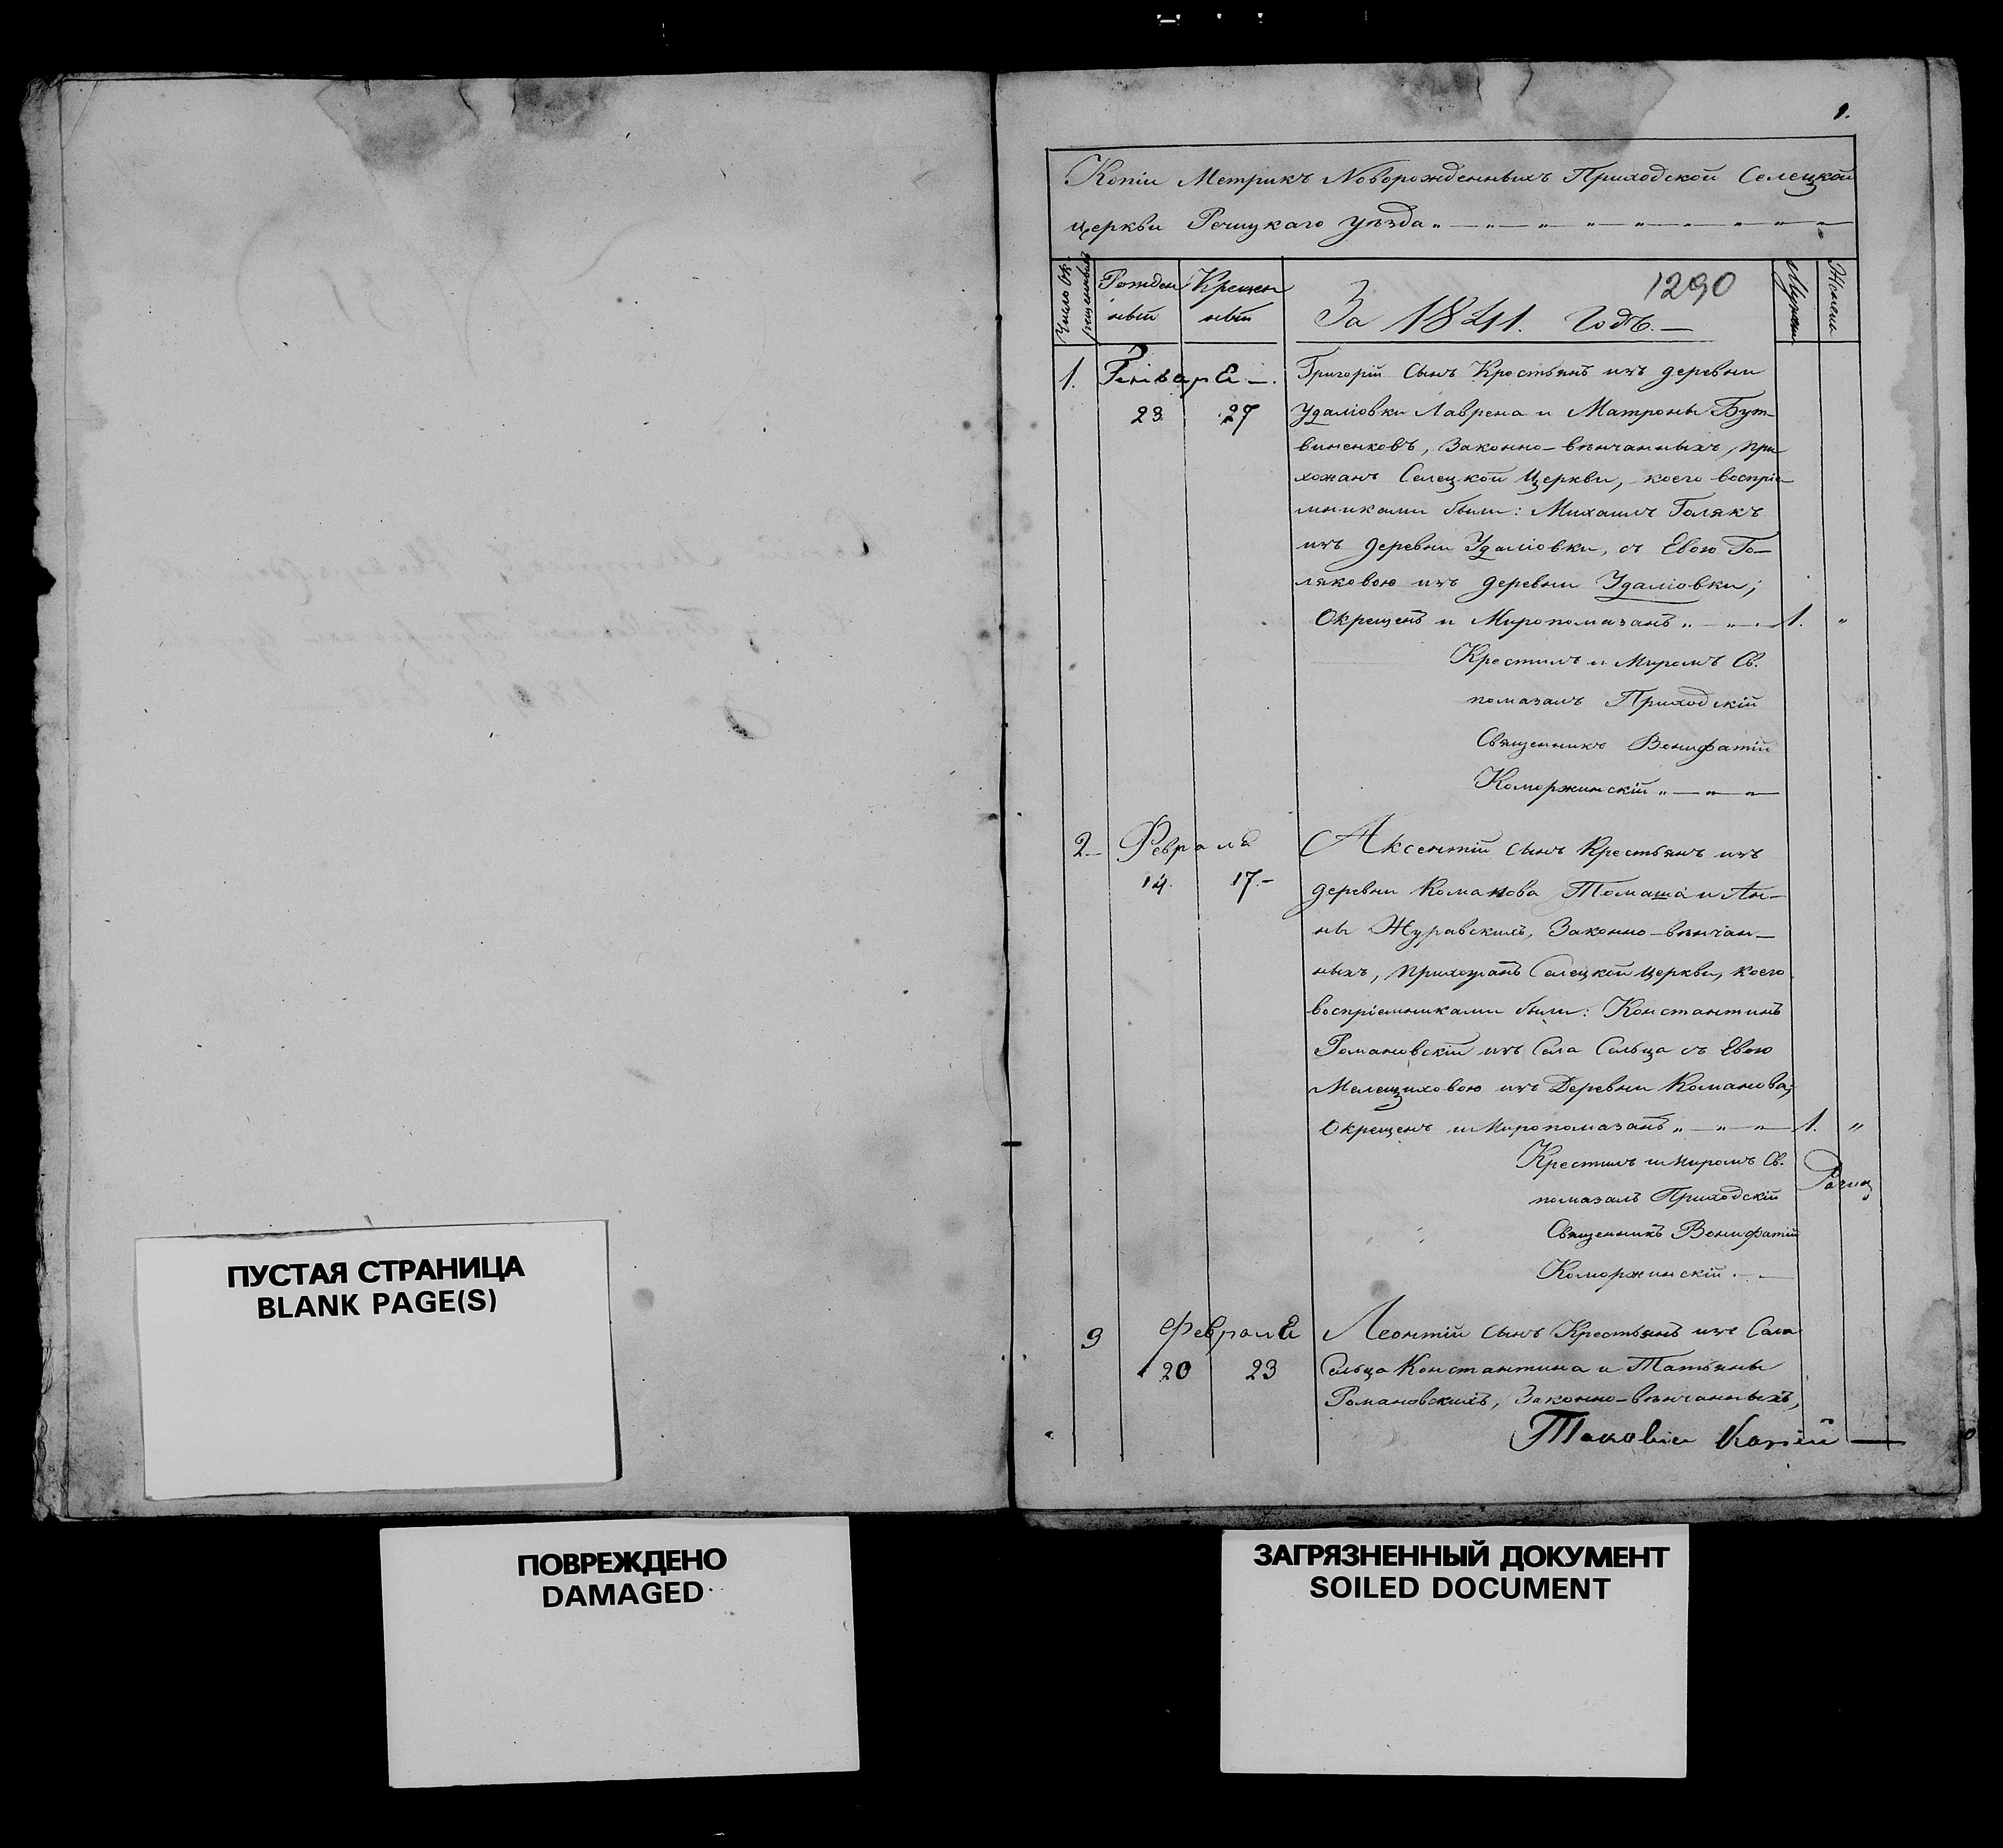 1.
Копіи Метрикъ Новорожденныхъ Приходской Селецкой
церкви Речицкаго уѣзда „ — „ — „ — „ — „ — „ — „ — „ —
Число ок-
рещенныхъ
Рожден
ный
Крещен
ный
1290
За 1841. Годъ. —
Мужеск
Женск
1. Генваря —. Григорій Сынъ Крестьянъ изъ деревни
23 27 Удаліовки Лаврена и Матроны Бут-
виненковъ, Законно-вѣнчанныхъ, при
хожанъ Селецкой Церкви, коего воспріе
мниками были: Михаилъ Голякъ
изъ деревни Удаліовки, съ Евою Го-
ляковою изъ деревни Удаліовки;
Окрещенъ и Миропомазанъ „ — „ — 1. „
Крестилъ и Миромъ Св.
помазалъ Приходскій
Священникъ Вонифатій
Коморжинскій „ — „ — „
2— Февраля Аксентій сынъ Крестьянъ изъ
14. 17.- деревни Команова Томаша и Ан-
ны Журавскихъ, Законно-вѣнчан-
ныхъ, прихожанъ Селецкой церкви, коего
воспріемниками были: Константинъ
Романовскій изъ Села Сельца съ Евою
Мелещиховою изъ Деревни Команова;
Окрещенъ и Миропомазанъ „ — „ — „ — 1. „
Крестилъ и миромъ Св.
помазалъ Приходскій
Священникъ Вонифатій
Коморжинскій. —
3 Февраля Леонтій сынъ Крестьянъ изъ Села
20 23 Сельца Константина и Татьяны
Романовскихъ, Законно-вѣнчанныхъ,
Таковіи Копіи —
ПУСТАЯ СТРАНИЦА
BLANK PAGE(S)
ПОВРЕЖДЕНО
DAMAGED
ЗАГРЯЗНЕННЫЙ ДОКУМЕНТ
SOILED DOCUMENT